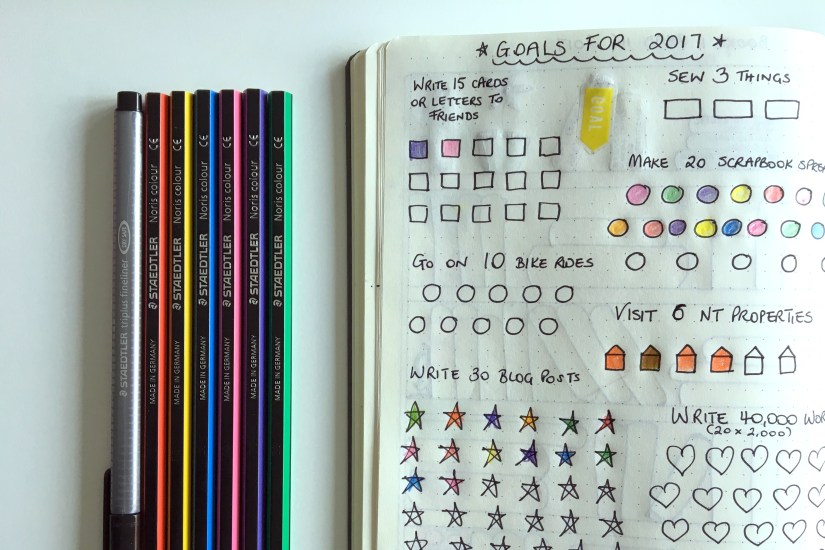 ★ GOALS FOR 2017 ★
WRITE 15 CARDS
OR LETTERS TO
FRIENDS
GOAL
SEW 3 THINGS
MAKE 20 SCRAPBOOK SPREA
GO ON 10 BIKE RIDES
VISIT 6 NT PROPERTIES
WRITE 30 BLOG POSTS
WRITE 40,000 WOR
(20 x 2,000)
STAEDTLER triplus fineliner
MADE IN GERMANY STAEDTLER Noris colour CE
MADE IN GERMANY STAEDTLER Noris colour CE
MADE IN GERMANY STAEDTLER Noris colour CE
MADE IN GERMANY STAEDTLER Noris colour CE
MADE IN GERMANY STAEDTLER Noris colour CE
MADE IN GERMANY STAEDTLER Noris colour CE